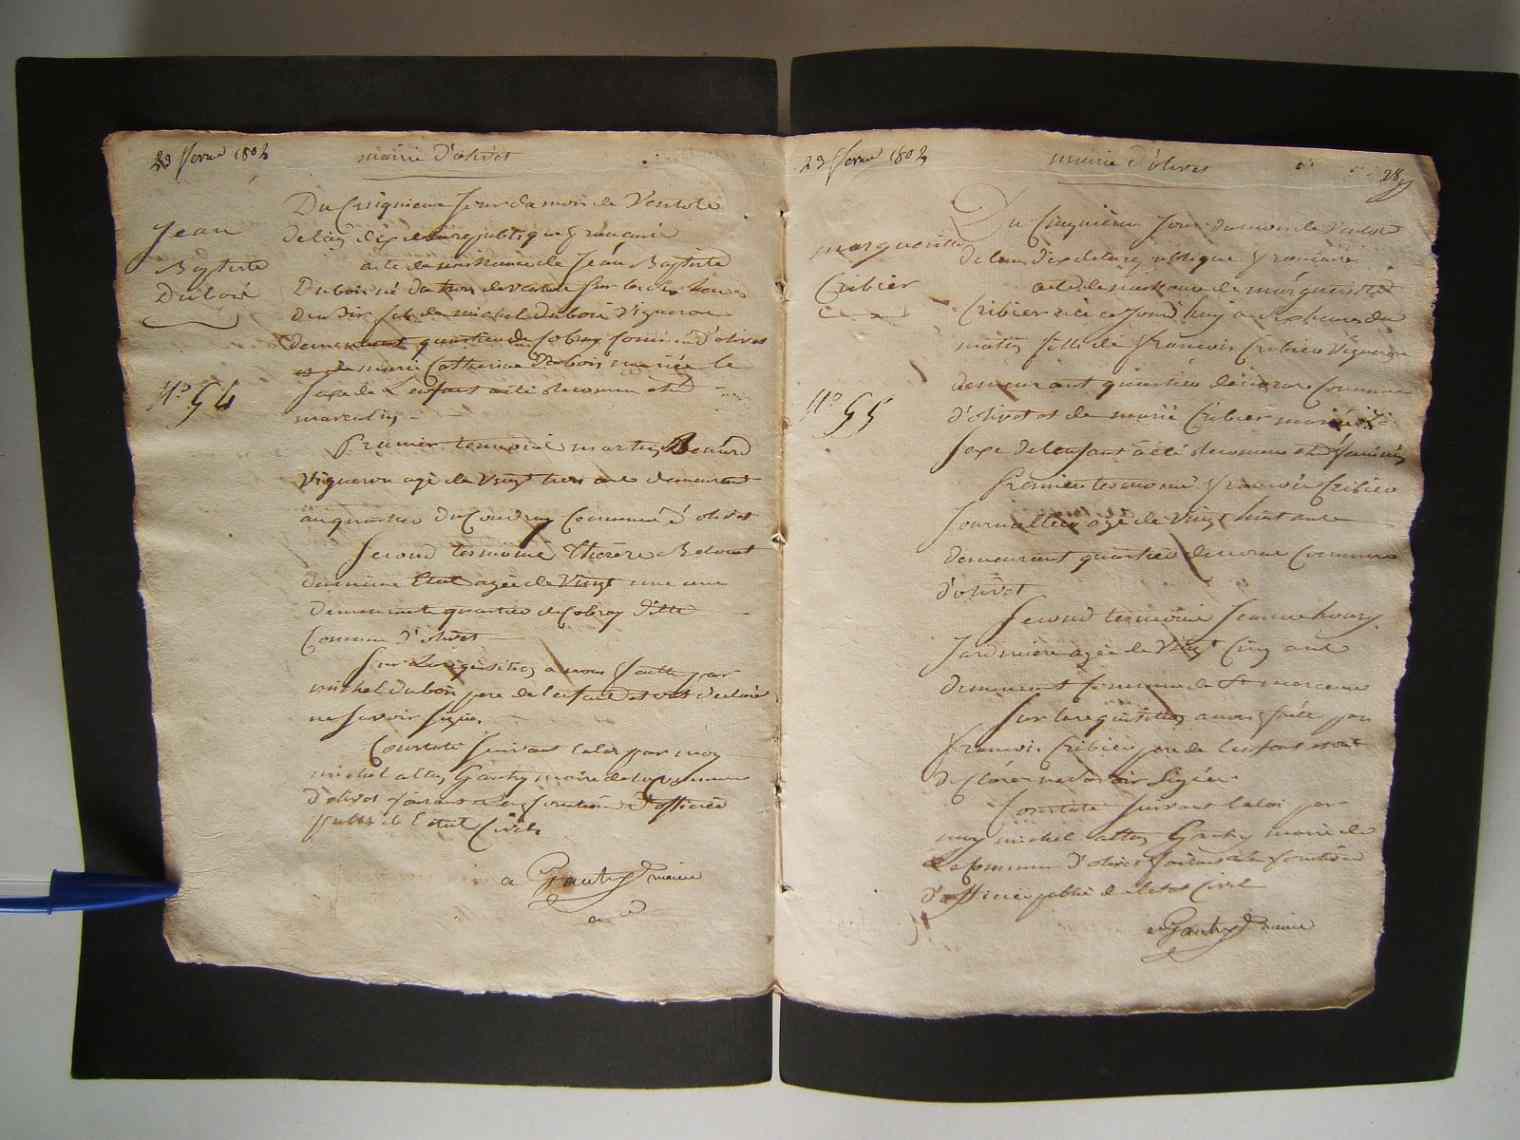 23 fevrier 1802
mairie d'olivet
Jean
Baptiste
Dubois
N° 54
Du Cinquieme Jour du mois de Ventose
De l'an dix de la republique francaise
acte de naissance de Jean Baptiste
Dubois né du trois de ventose sur les
Dix fils de michel Dubois Vigneron
demeurant quartier de Cobray Commune d'olivet
et de marie Catherine Dubois mariée le
Sexe de L'enfant a été Reconnu etre
masculin
Premier temoin martin Benard
Vigneron agé de Vingt trois ans demeurant
au quartier du Coudray Commune d'olivet
Second temoins Therese
agée de Vingt une ans
Demeurante quartier de Cobray Ditte
Commune d'olivet
Sur La requisition a nous faitte par
michel Dubois pere de l'enfant et ont declaré
ne Savoir Signer
Constaté Suivant la loi par moy
michel Gautry maire de la Commune
D'olivet faisant les fonctions D'officier
public de l'etat Civile
Gautry maire
23 fevrier 1802
mairie d'olivet
28
marguerite
Cribier
N° 55
Du Cinquieme Jour du mois de Ventose
De l'an dix de la republique francaise
acte de naissance de marguerite
Cribier née ce Jourd'huy a six heures du
matin fille de francois Cribier Vigneron
demeurant quartier Commune
d'olivet et de marie Cribier mariée le
Sexe De l'enfant a été Reconnu etre feminin
Premier temoins francois Cribier
Journallier agé de Vingt huit ans
demeurant quartier Commune
d'olivet
Second temoins Jeanne
Jardiniere agée de Vingt Cinq ans
Demeurant Commune de St marceau
Sur la requisition a nous faite par
francois Cribier pere de l'enfant et ont
Declaré ne Savoir Signer
Constaté Suivant la loi par
moy michel Gautry maire de
La Commune D'olivet faisant les fonctions
D'officier public de l'etat Civile
Gautry maire